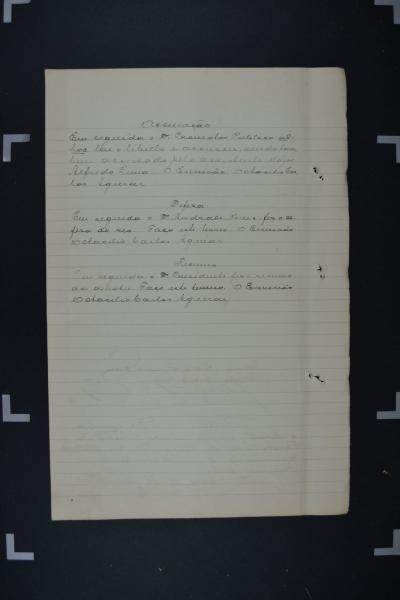 Accusação
Em seguida o Dr. Promotor Publico ad
hoc leu o libello e accusou, sendo tam
bem accusado pelo assistente
Alfredo Lima. O Escrivão Octacilio Car
los Aguiar
Defesa
Em seguida o Dr. Andrade Neves fez a de
fesa do reo. Faço este termo. O Escrivão
Octacilio Carlos Aguiar
Resumo
Em seguida o Dr. Presidente fez resumo
dos debates. Faço este termo. O Escrivão
Octacilio Carlos Aguiar